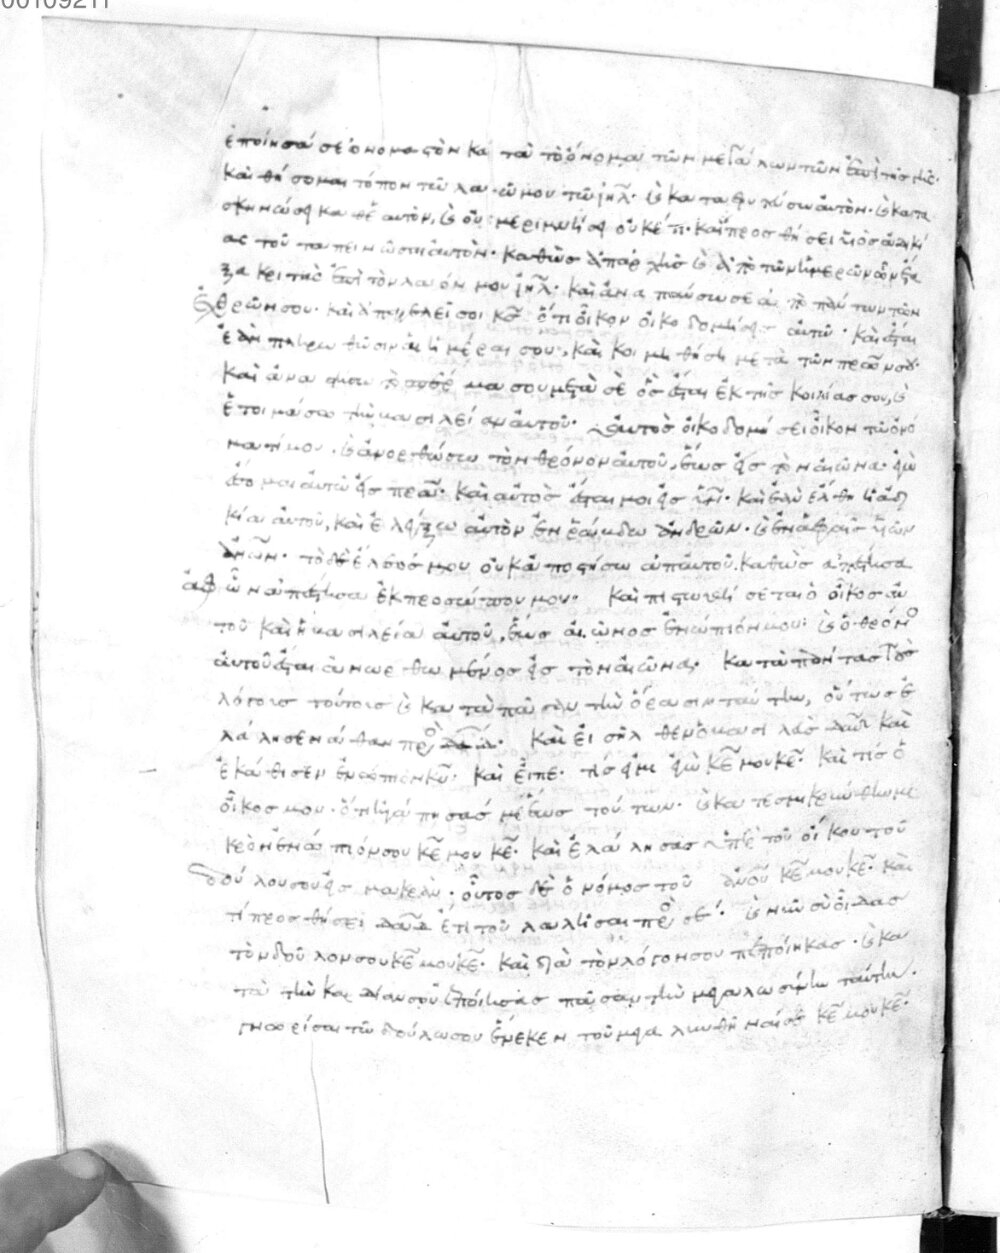 00109211
ἐποίησά σε ὀνομαστὸν κατὰ τὸ ὄνομα τῶν μεγάλων τῶν ἐπὶ τῆς γῆς·
καὶ θήσομαι τόπον τῶ λαῶ μου τῶ ἰηλ· καὶ καταφυτεύσω αὐτὸν· καὶ κατα
σκηνώσει καθ' ἑαυτὸν, καὶ οὐ μεριμνήσει οὐκέτι· καὶ προσθήσει υἱὸς ἀδικί
ας τοῦ ταπεινῶσαι αὐτὸν· καθὼς ἀπαρχῆς καὶ ἀπὸ τῶν ἡμερῶν ὧν ἔτα
ξα κριτὰς ἐπὶ τὸν λαόν μου ἰηλ· καὶ ἀναπαύσω σε ἀπὸ πάντων τῶν
ἐχθρῶν σου· καὶ ἀπαγγελεῖ σοι κς ὅτι οἶκον οἰκοδομήσει αὐτῶ· καὶ ἔσται
ἐὰν πληρωθῶσιν αἱ ἡμέραι σου, καὶ κοιμηθήση μετὰ τῶν πρων σου·
καὶ ἀναστήσω τὸ σπέρμα σου μετὰ σὲ ὃς ἔσται ἐκ τῆς κοιλίας σου, καὶ
ἑτοιμάσω τὴν βασιλείαν αὐτοῦ· αὐτὸς οἰκοδομήσει οἶκον τῶ ὀνό
ματί μου· καὶ ἀνορθώσω τὸν θρόνον αὐτοῦ ἕως εἰς τὸν αἰῶνα· ἐγὼ
ἔσομαι αὐτῶ εἰς πρα· καὶ αὐτὸς ἔσται μοι εἰς υἱόν· καὶ ἐὰν ἔλθη ἡ ἀδι
κία αὐτοῦ, καὶ ἐλέγξω αὐτὸν ἐν ῥάβδω ἀνδρῶν· καὶ ἐν ἁφαῖς υἱῶν
ἀνων· τὸ δὲ ἔλεός μου οὐκ ἀποστήσω ἀπ' αὐτοῦ· καθὼς ἀπέστησα
ἀφ' ὧν ἀπέστησα ἐκ προσώπου μου· καὶ πιστωθήσεται ὁ οἶκος αὐ
τοῦ καὶ ἡ βασιλεία αὐτοῦ, ἕως αἰῶνος ἐνώπιόν μου· καὶ ὁ θρόνος
αὐτοῦ ἔσται ἀνωρθωμένος εἰς τὸν αἰῶνα· κατὰ πάντας τοὺς
λόγους τούτους καὶ κατὰ πᾶσαν τὴν ὅρασιν ταύτην, οὕτως ἐ
λάλησε νάθαν πρὸς δαδ· καὶ εἰσῆλθεν ὁ βασιλεὺς δαδ καὶ
ἐκάθισεν ἐνώπιον κυ· καὶ εἶπε· τίς εἰμι ἐγὼ κε μου κε· καὶ τίς ὁ
οἶκος μου· ὅτι ἠγάπησάς με ἕως τούτων· καὶ κατεσμικρύνθην μι
κρὸν ἐνώπιόν σου κε μου κε· καὶ ἐλάλησας ὑπὲρ τοῦ οἴκου τοῦ
δούλου σου εἰς μακρὰν· οὗτος δὲ ὁ νόμος τοῦ ἀνου κε μου κε· καὶ
τί προσθήσει δαδ ἔτι τοῦ λαλῆσαι πρὸς σέ· καὶ νῦν σὺ οἶδας
τὸν δοῦλον σου κε μου κε· καὶ διὰ τὸν λόγον σου πεποίηκας· καὶ κα
τὰ τὴν καρδίαν σου ἐποίησας πᾶσαν τὴν μεγαλωσύνην ταύτην·
γνωρίσαι τῶ δούλω σου ἕνεκεν τοῦ μεγαλυνθῆναί σε κε μου κε·